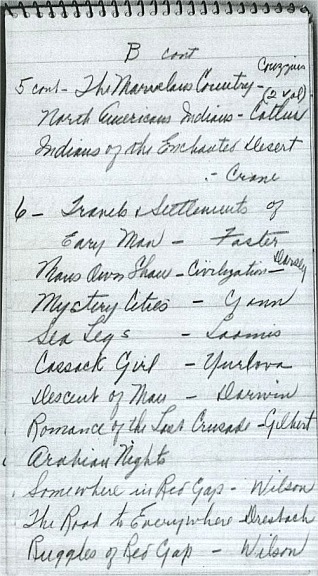 B cont
Cozzins
5 cont - The Marvelous Country - (2 vol)
North Americans Indians - Catlin
Indians of the Enchanted Desert
- Crane
6 - Travels & Settlements of
Eary Man - Foster
Mans Own Show - Civilization - Dorsey
Mystery Cities - Gann
Sea Legs - Loomis
Cossack Girl - Yurlova
Descent of Man - Darwin
Romance of the Last Crusade - Gilbert
Arabian Nights
Somewhere in Red Gap - Wilson
The Road to Everywhere Dresbach
Ruggles of Red Gap - Wilson